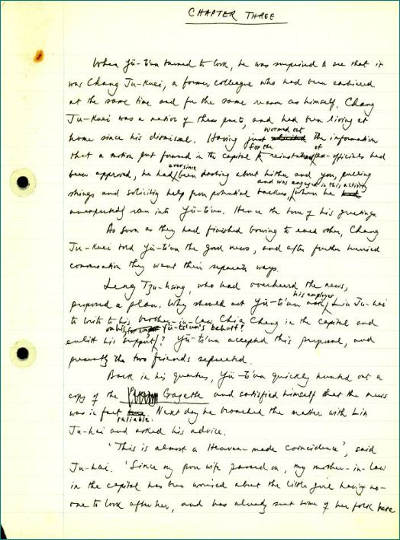 CHAPTER THREE
When Yü-ts'un turned to look, he was surprised to see that it
was Chang Ju-kuei, a former colleague who had been cashiered
at the same time and for the same reason as himself. Chang
Ju-kuei was a native of these parts, and had been living at
home since his dismissal. Having just wormed out the information
that a motion put forward in the capital for the reinstatement of ex-officials had
been approved, he had ever since been dashing about hither and yon, pulling
strings and soliciting help from potential backers, and was engaged in this activity when he
unexpectedly ran into Yü-ts'un. Hence the tone of his greeting.
As soon as they had finished bowing to each other, Chang
Ju-kuei told Yü-ts'un the good news, and after further hurried
conversation they went their separate ways.
Leng Tzu-hsing, who had overheard the news,
proposed a plan. Why should not Yü-ts'un ask his employer Lin Ju-hai
to write to his brother-in-law Chia Cheng in the capital and
enlist his support on Yü-ts'un's behalf? Yü-ts'un accepted this proposal, and
presently the two friends separated.
Back in his quarters, Yü-ts'un quickly hunted out a
copy of the Gazette and satisfied himself that the news
was in fact reliable. Next day he broached the matter with Lin
Ju-hai and asked his advice.
'This is almost a Heaven-made coincidence', said
Ju-hai. 'Since my poor wife passed on, my mother-in-law
in the capital has been worried about the little girl having no-
one to look after her, and has already sent some of her folk here